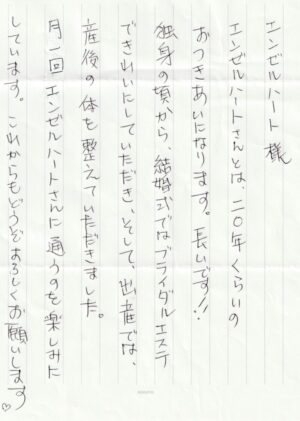 エンゼルハート 様
エンゼルハートさんとは、二〇年くらいの
おつきあいになります。長いです!!
独身の頃から、結婚式ではブライダルエステ
できれいにしていただき、そして、出産では、
産後の体も整えていただきました。
月一回エンゼルハートさんに通うのを楽しみに
しています。これからもどうぞよろしくお願いします♡